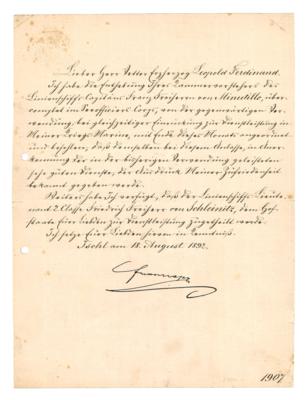 Lieber Herr Vetter Erzherzog Leopold Ferdinand.
Ich habe die Enthebung Ihres Kammervorstehers des
Linienschiffs-Capitäns Franz Freiherrn von Minutillo, über-
complet im Seeofficiers Corps, von der gegenwärtigen Ver-
wendung, bei gleichzeitiger Einrückung zur Dienstleistung in
Meiner Kriegs Marine, mit Ende dieses Monats angeordnet
und befohlen, daß demselben bei diesem Anlasse, in Aner-
kennung der in der bisherigen Verwendung geleisteten
sehr guten Dienste, der Ausdruck Meiner Zufriedenheit
bekannt gegeben werde.
Weiters habe Ich verfügt, daß der Linienschiffs Lieute-
nant 2. Classe Friedrich Freiherr von Schleinitz, dem Hof-
staate Euer Liebden zur Dienstleistung zugetheilt werde.
Ich setze Euer Liebden hievon in Kenntniß.
Ischl am 18. August 1892.
1907